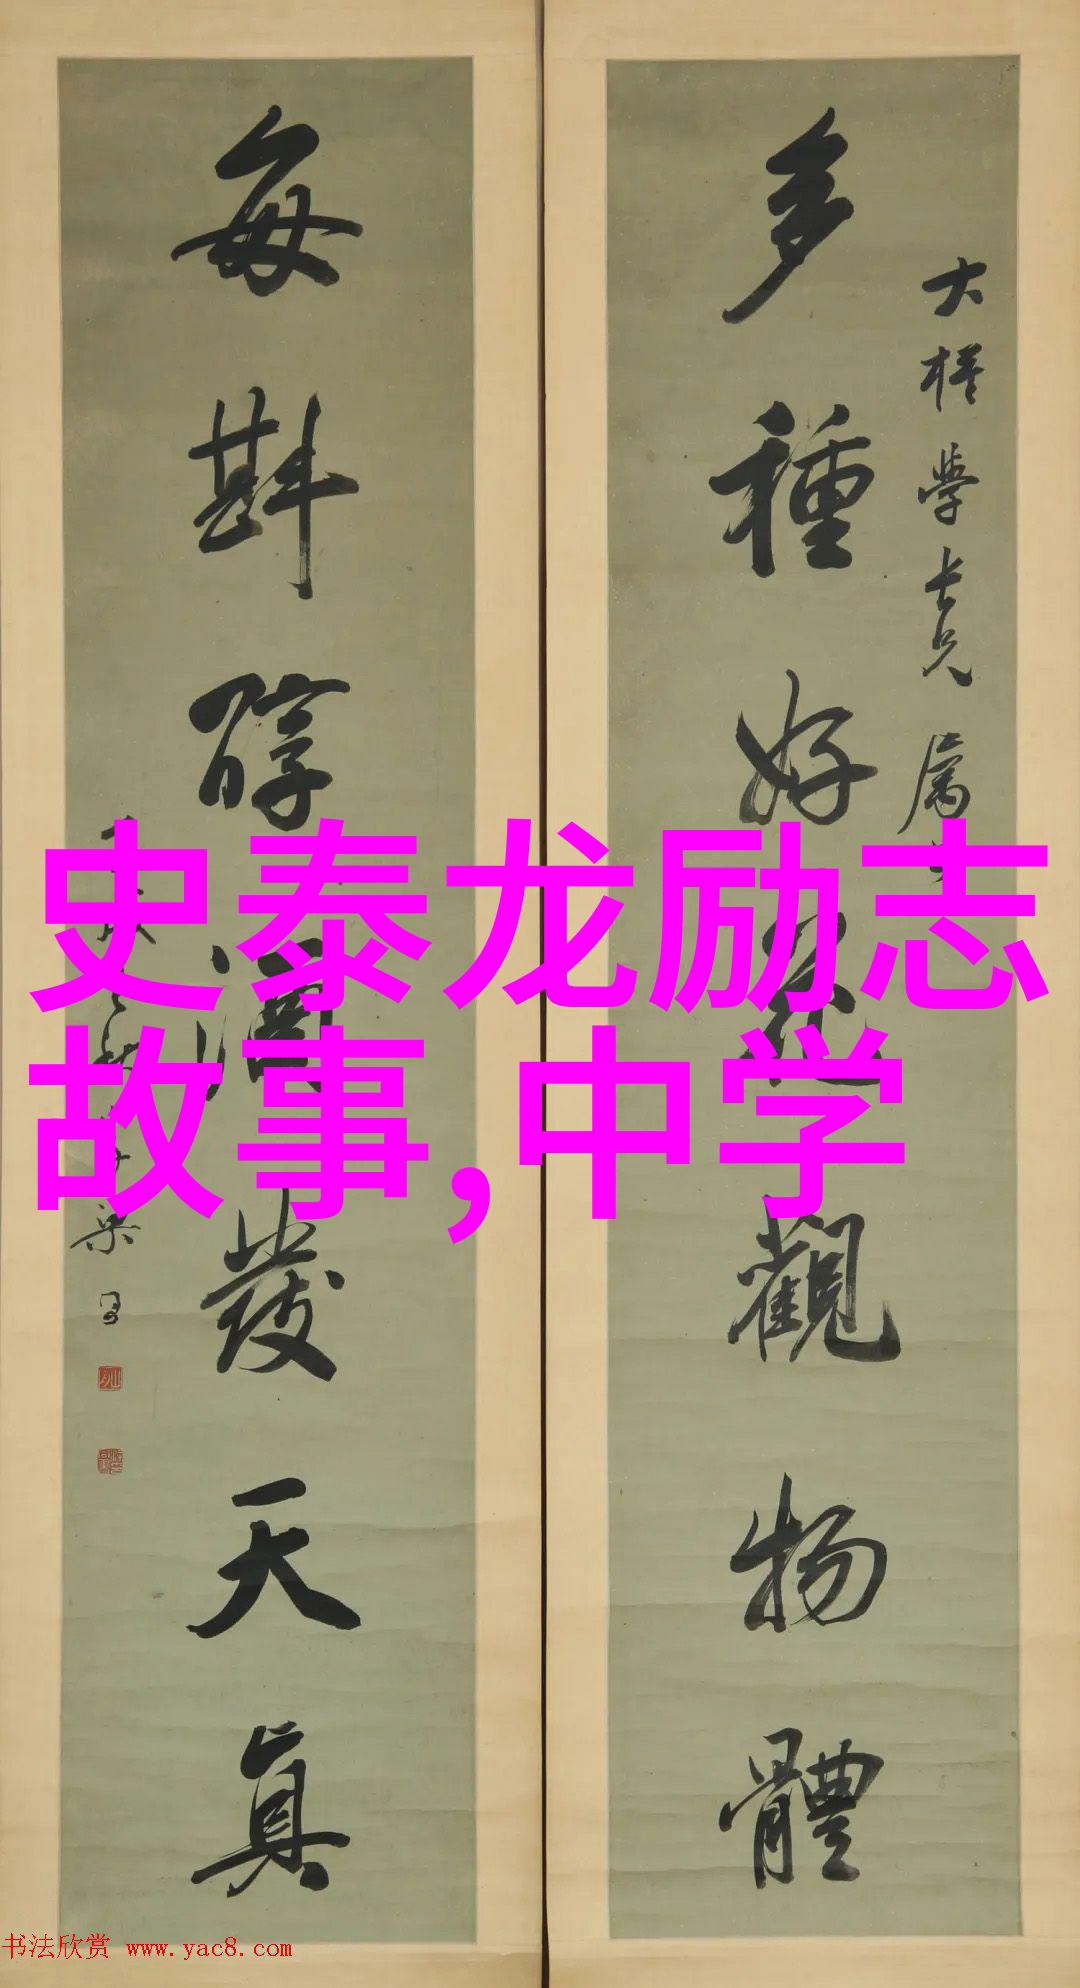 大樸學長兄 屬
多種好花觀物體
每斟醇酒發天真
梁
史泰龙励志
故事,中学
书法欣赏 www.yac8.com